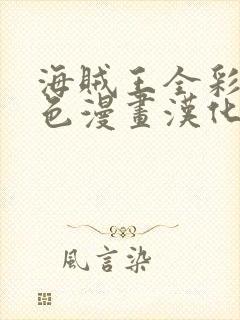 海賊王全彩
色漫畫漢化
風言染